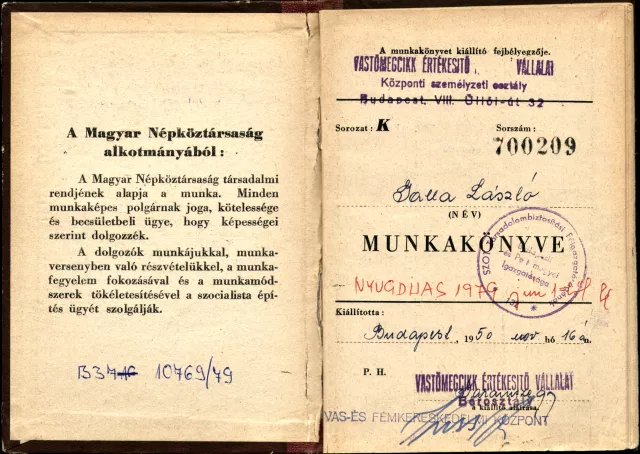 A Magyar Népköztársaság
alkotmányából:
A Magyar Népköztársaság társadalmi
rendjének alapja a munka. Minden
munkaképes polgárnak joga, kötelessége
és becsületbeli ügye, hogy képességei
szerint dolgozzék.
A dolgozók munkájukkal, munka-
versenyben való részvételükkel, a munka-
fegyelem fokozásával és a munkamód-
szerek tökéletesítésével a szocialista épí-
tés ügyét szolgálják.
10769/79
A munkakönyvet kiállító fejbélyegzője.
VASTÖMEGCIKK ÉRTÉKESITŐ VÁLLALAT
Központi személyzeti osztály
Budapest, VIII. Üllői-út 32
Sorozat: K
Sorszám:
700209
László
(NÉV)
MUNKAKÖNYVE
NYUGDIJAS 1979
Kiállította:
Budapest, 1950 nov hó 16 n.
P. H.
VASTÖMEGCIKK ÉRTÉKESITŐ VÁLLALAT
a kiállító aláírása.
VAS-ÉS FÉMKERESKEDELMI KÖZPONT